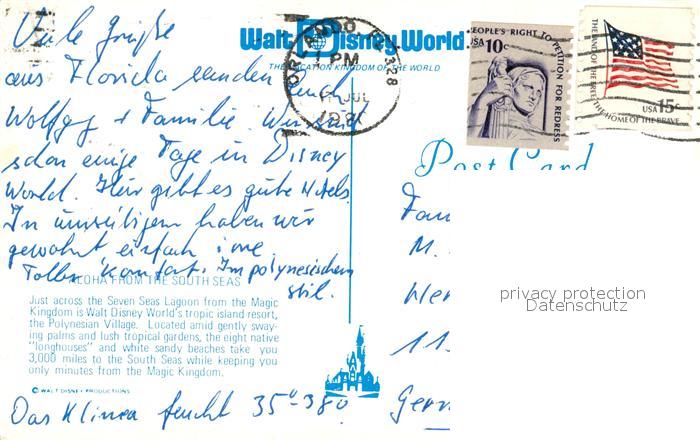 Viele Grüße
aus Florida senden Euch
Wolfgg + Familie. Wir sind
schon einige Tage in Disney
World. Hier gibt es gute Hotels.
In umseitigem haben wir
gewohnt einfach
Toller Komfort. Im polynesischem
stil.
ALOHA FROM THE SOUTH SEAS
Just across the Seven Seas Lagoon from the Magic
Kingdom is Walt Disney World's tropic island resort,
the Polynesian Village. Located amid gently sway-
ing palms and lush tropical gardens, the eight native
"longhouses" and white sandy beaches take you
3,000 miles to the South Seas while keeping you
only minutes from the Magic Kingdom.
© WALT DISNEY PRODUCTIONS
Das Klima feucht 35°-38°.
Walt Disney World.
THE VACATION KINGDOM OF THE WORLD
ORLANDO FL 328
PM
JUL
PEOPLE'S RIGHT TO PETITION FOR REDRESS
USA 10c
THE LAND OF THE FREE THE HOME OF THE BRAVE
USA 15c
Post Card
Fam
M.
Wer
11
Germ
privacy protection
Datenschutz